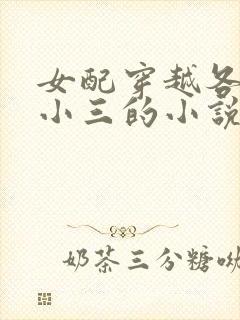 女配穿越各
小三的小說
奶茶三分糖呦